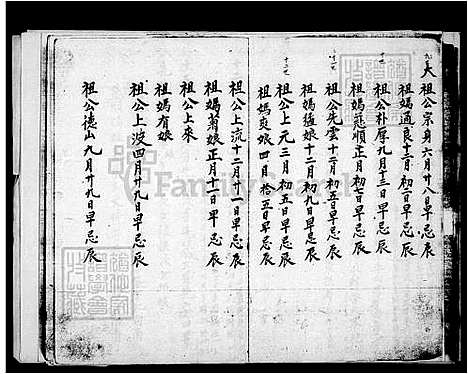 大
祖公宗身六月廿八日早忌辰
祖媽通良十二月初二日早忌辰
祖公朴厚九月十三日早忌辰
祖媽慈順正月初二日早忌辰
祖公先雲十二月初五日早忌辰
祖媽蘊娘十二月初九日早忌辰
祖公上元三月初五日早忌辰
祖媽爽娘四月拾五日早忌辰
祖公上流十二月廿一日早忌辰
祖媽菊娘正月十一日早忌辰
祖公上來
祖媽有娘
祖公上沒四月廿九日早忌辰
祖公德山九月廿九日早忌辰
FamilySearch